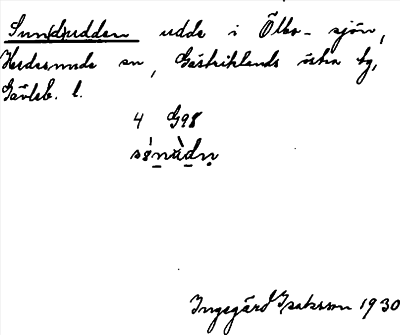 Sun(d)udden udde i Ölbo-sjön,
Hedesunda sn, Gästriklands östra tg,
Gävleb. l.
4 G98
Ingegärd Isaksson 1930